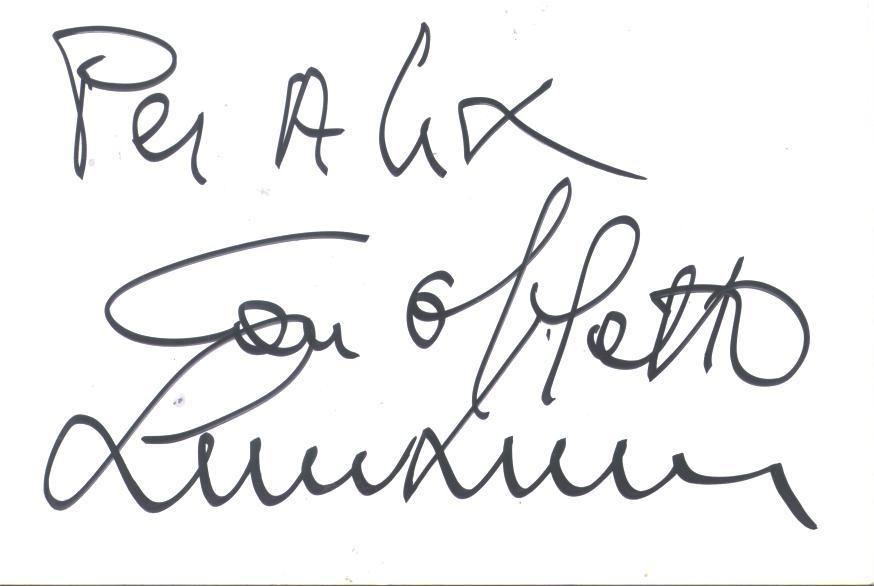 Per Alix
Con affetto